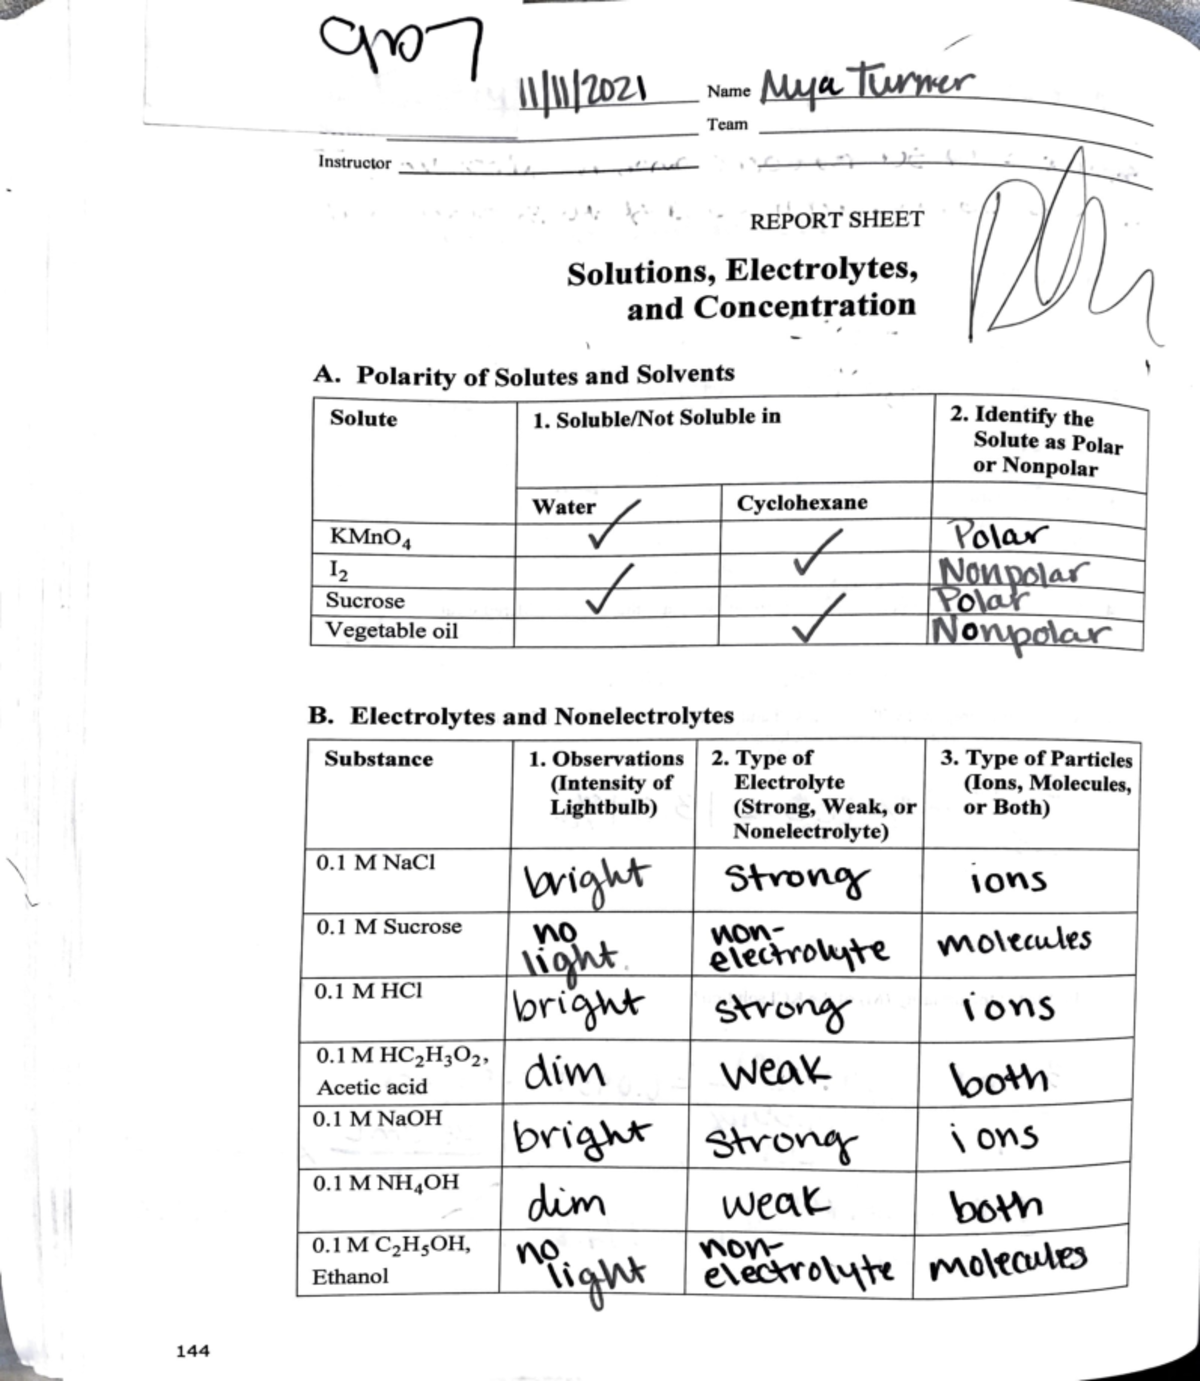 Lab
11/11/2021 Name Mya Turner
Team
Instructor
REPORT SHEET
Solutions, Electrolytes,
and Concentration
A. Polarity of Solutes and Solvents
Solute 1. Soluble/Not Soluble in 2. Identify the
Solute as Polar
or Nonpolar
Water Cyclohexane
KMnO₄ ✓ Polar
I₂ ✓ Nonpolar
Sucrose ✓ Polar
Vegetable oil ✓ Nonpolar
B. Electrolytes and Nonelectrolytes
Substance 1. Observations 2. Type of 3. Type of Particles
(Intensity of Electrolyte (Ions, Molecules,
Lightbulb) (Strong, Weak, or or Both)
Nonelectrolyte)
0.1 M NaCl bright strong ions
0.1 M Sucrose no non- molecules
light. electrolyte
0.1 M HCl bright strong ions
0.1 M HC₂H₃O₂, dim weak both
Acetic acid
0.1 M NaOH bright strong ions
0.1 M NH₄OH dim weak both
0.1 M C₂H₅OH, no non- molecules
Ethanol light electrolyte
144